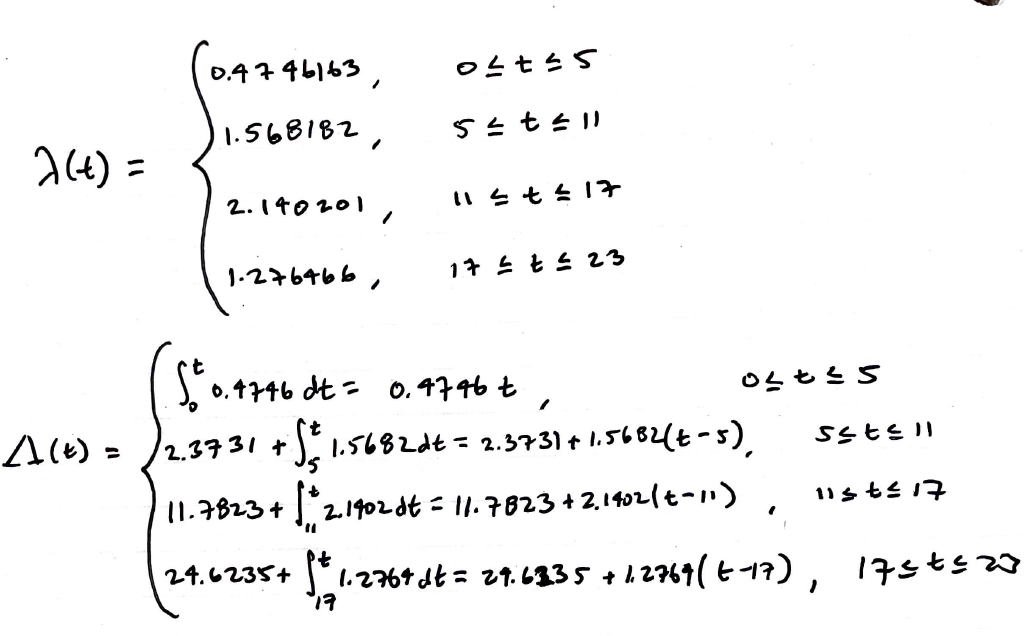 λ(t) = { 0.4746163, 0 ≤ t ≤ 5
1.568182, 5 ≤ t ≤ 11
2.140201, 11 ≤ t ≤ 17
1.276466, 17 ≤ t ≤ 23
Λ(t) = { ∫₀ᵗ 0.4746 dt = 0.4746 t, 0 ≤ t ≤ 5
2.3731 + ∫₅ᵗ 1.5682 dt = 2.3731 + 1.5682(t-5), 5 ≤ t ≤ 11
11.7823 + ∫₁₁ᵗ 2.1402 dt = 11.7823 + 2.1402(t-11), 11 ≤ t ≤ 17
24.6235 + ∫₁₇ᵗ 1.2764 dt = 24.6235 + 1.2764(t-17), 17 ≤ t ≤ 23